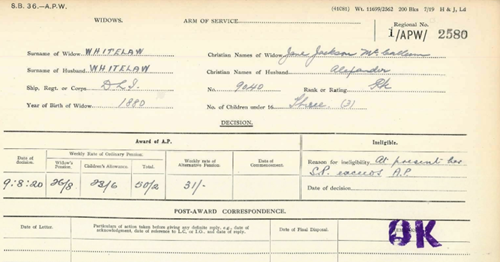 S.B. 36.—A.P.W. (41081) Wt. 11699/2562 200 Bks 7/19 H & J, Ld
WIDOWS. ARM OF SERVICE. Regional No.
1/APW/ 2580
Surname of Widow WHITELAW Christian Names of Widow Jane Jackson McCallum
Surname of Husband WHITELAW Christian Names of Husband Alexander
Ship, Regt. or Corps D.L.I. No. 9040 Rank or Rating Pte
Year of Birth of Widow 1880 No. of Children under 16 Three (3)
DECISION.
Award of A.P. Ineligible.
Date of Decision. Weekly Rate of Ordinary Pension. Weekly rate of Alternative Pension. Date of Commencement. Reason for ineligibility At present has
Widow's Pension. Children's Allowance. Total.
9.8.20 26/8 23/6 50/2 31/- S.P. exceeds A.P.
Date of decision
POST-AWARD CORRESPONDENCE.
Date of Letter. Particulars of action taken before giving any definite reply, e.g., date of acknowledgment, date of reference to L.C. or I.O., and date of reply. Date of Final Disposal.
OK